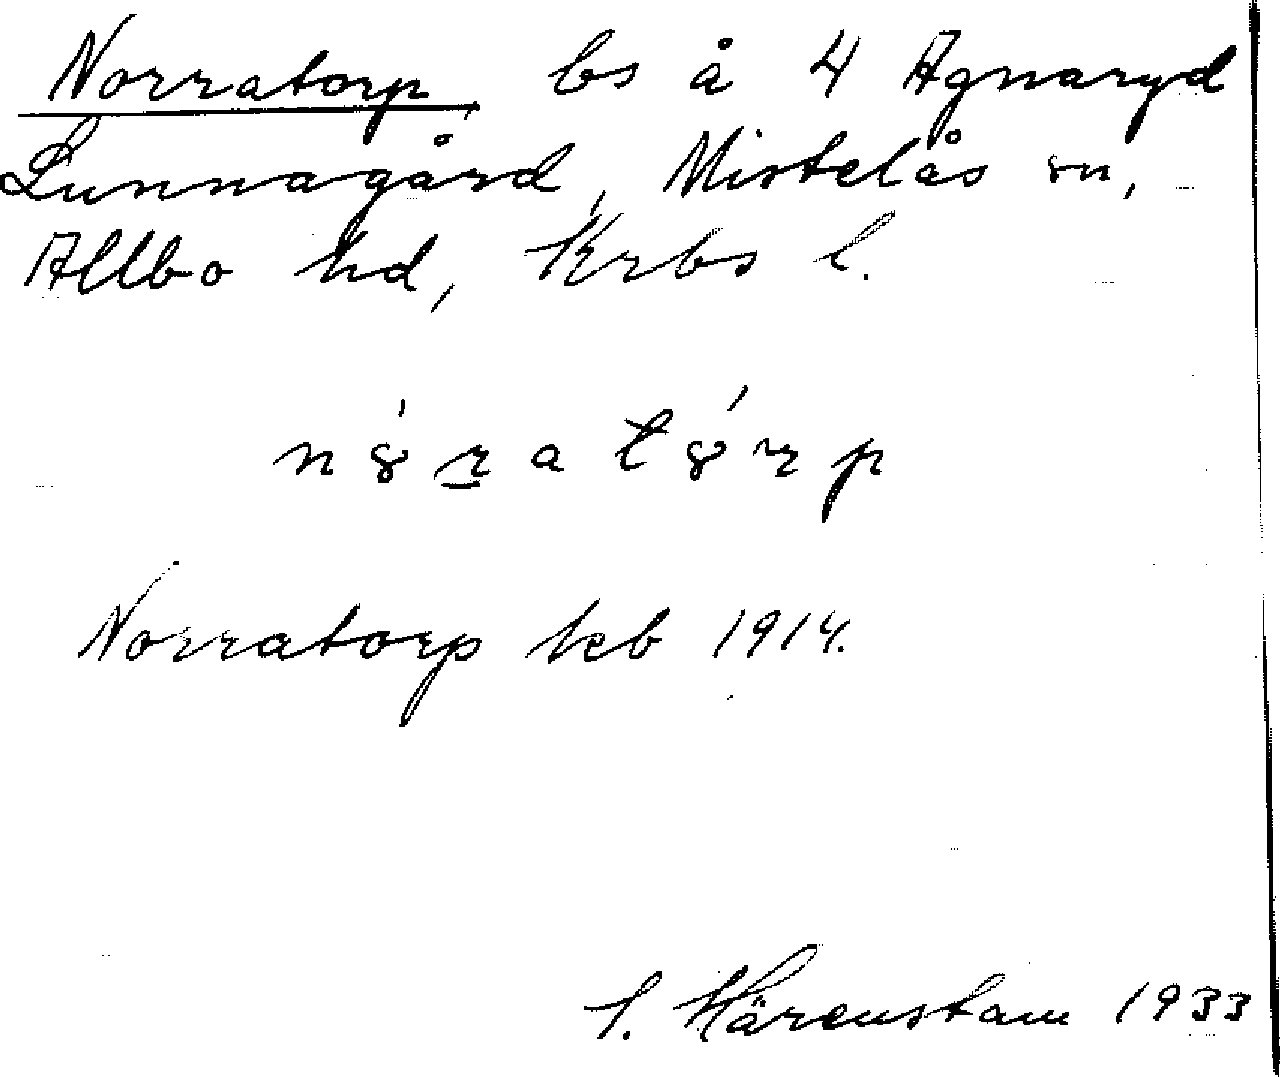 Norratorp, bs å 4 Agnaryd
Lunnagård, Mistelås sn,
Allbo hd, Krbs l.
nȣ́r̲atȣ́rp
Norratorp kb 1914.
S. Härenstam 1933